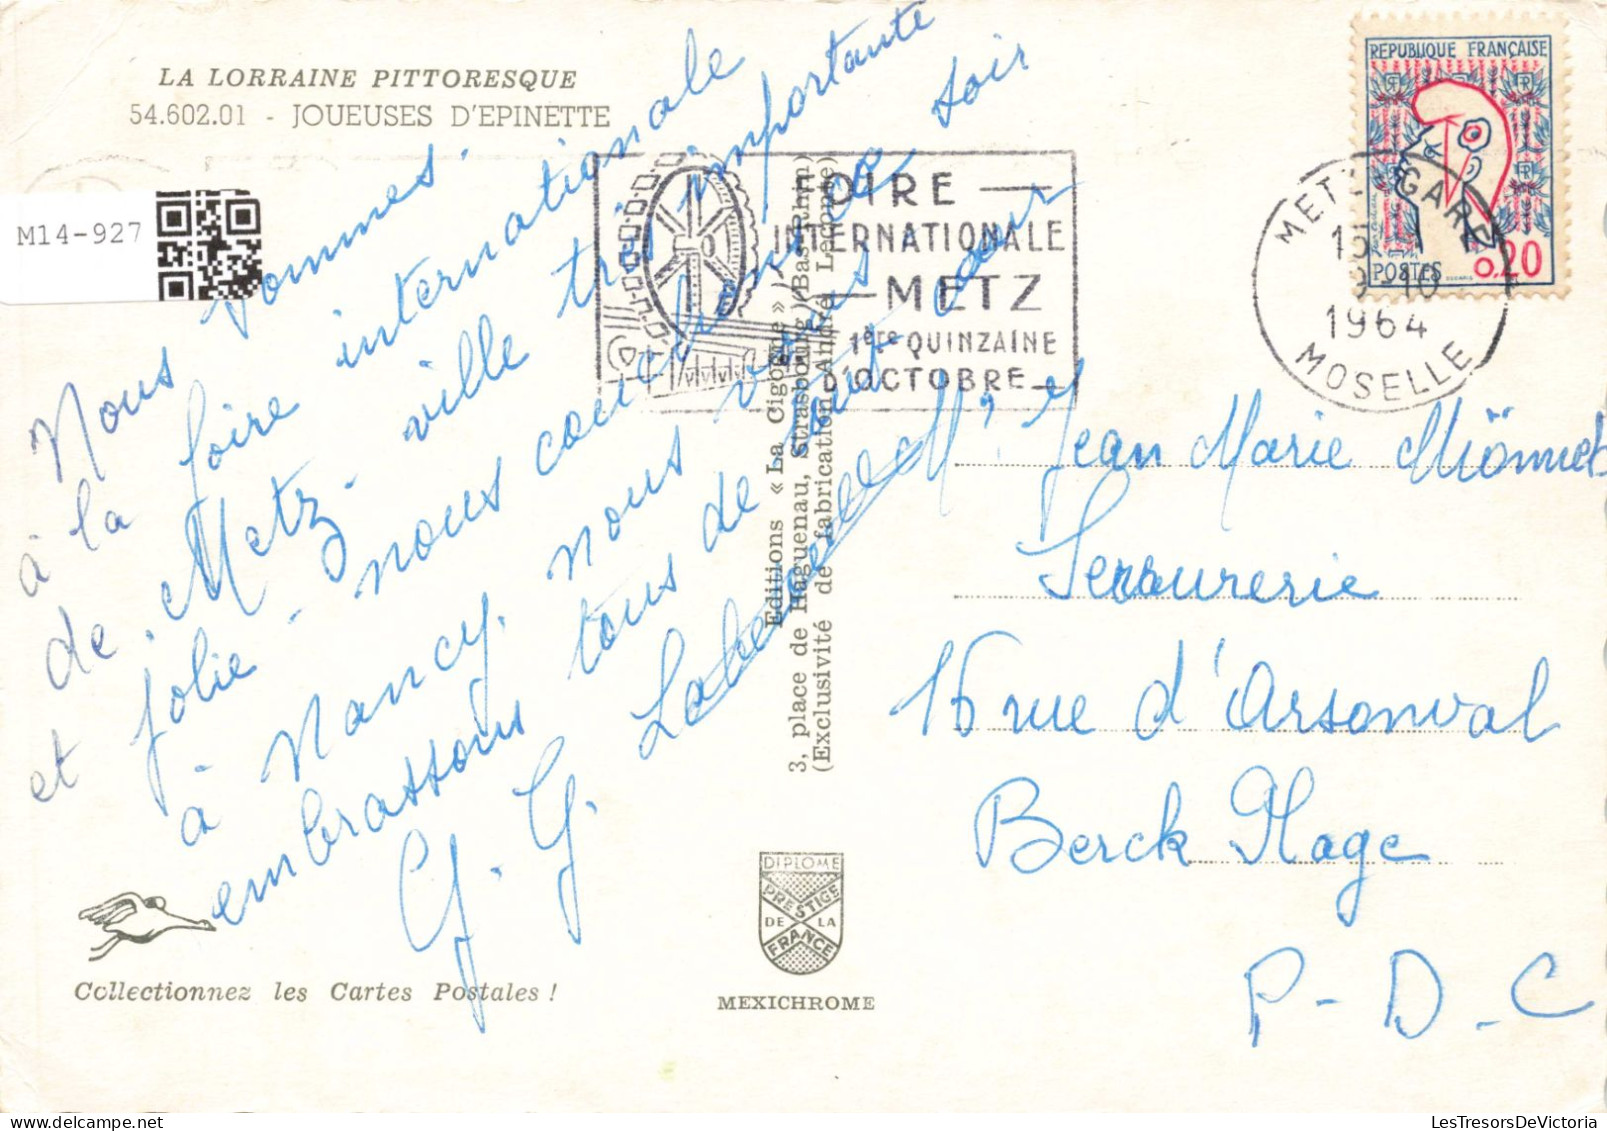 LA LORRAINE PITTORESQUE
54.602.01 - JOUEUSES D'EPINETTE
M14-927
Nous sommes
à la foire internationale
de Metz - ville très importante
et jolie - nous couchons ce soir
à Nancy, nous vous
embrassons tous de tout cœur
G. G.
Collectionnez les Cartes Postales !
Editions « La Cigogne »
3, place de Haguenau, Strasbourg (Bas-Rhin)
(Exclusivité de fabrication André Leconte)
DIPLOME
PRESTIGE
DE LA
FRANCE
MEXICHROME
FOIRE
INTERNATIONALE
METZ
1ère QUINZAINE
D'OCTOBRE
METZ GARE
15
9-10
1964
MOSELLE
REPUBLIQUE FRANÇAISE
RF
POSTES 0,20
M. Jean Marie Miönnet
Serrurerie
16 rue d'Arsonval
Berck Plage
P-D.C
LesTresorsDeVictoria.com